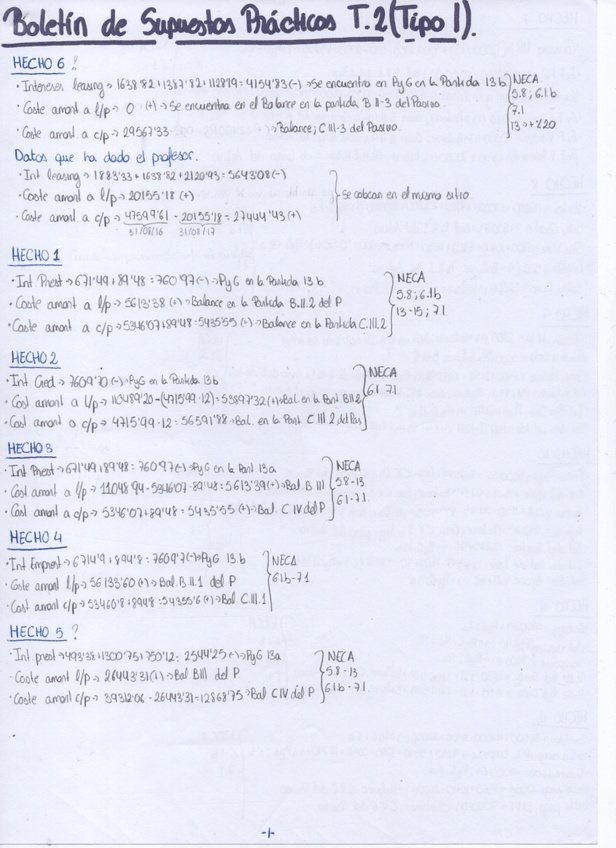 Boletín de Supuestos Prácticos T.2 (Tipo I).
HECHO 6 ?
· Intereses leasing → 1638'82+1387'82+1128'19= 4154'83(-) → Se encuentra en PyG en la Partida 13 b
· Coste amort a l/p → 0 (+) → Se encuentra en el Balance en la partida B II-3 del Pasivo.
· Coste amort a c/p → 29567'33 → Balance; C III-3 del Pasivo.
NECA
5.8; 6.1b
7.1
13
Datos que ha dado el profesor.
· Int leasing → 1883'33+1638'82+2120'93= 5643'08(-)
· Coste amort a l/p → 20155'18 (+)
· Coste amort a c/p → 47599'61 - 20155'18 = 27444'43 (+)
31/08/16 31/08/17
Se colocan en el mismo sitio.
HECHO 1
· Int Prest → 671'49+89'48= 760'97(-) → PyG en la Partida 13 b
· Coste amort a l/p → 5613'38 (+) → Balance en la Partida B.II.2 del P
· Coste amort a c/p → 5346'07+89'48= 5435'55 (+) → Balance en la Partida C.III.2
NECA
5.8; 6.1b
13-15; 7.1
HECHO 2
· Int Cred → 7609'70 (-) → PyG en la Partida 13b
· Cost amort a l/p → 110489'20-(4715'99·12)= 53897'32(+) → Bal. en la Part B II 2
· Cost amort a c/p → 4715'99·12= 56591'88 → Bal. en la Part. C III 2 del Pas
NECA
6.1 7.1
HECHO 3
· Int Prest → 671'49+89'48= 760'97(-) → PyG en la Part 13a
· Cost amort a l/p → 11048'94-5346'07-89'48= 5613'39(+) → Bal. B III
· Cost amort a c/p → 5346'07+89'48= 5435'55 (+) → Bal C IV del P
NECA
5.8-13
6.1-7.1
HECHO 4
· Int Emprest → 6714'9+894'8= 7609'7(-) → PyG 13.b
· Coste amort l/p → 56133'60 (+) → Bal. B.II.1 del P
· Cost amort c/p → 53460'8+894'8= 54355'6 (+) → Bal C.III.1
NECA
6.1b-7.1
HECHO 5 ?
· Int prest → 493'38+1300'75+750'12= 2544'25(-) → PyG 13a
· Coste amort l/p → 26443'31(+) → Bal BIII del P
· Coste amort c/p → 39312'06-26443'31= 12868'75 → Bal CIV del P
NECA
5.8-13
6.1b-7.1
-1-